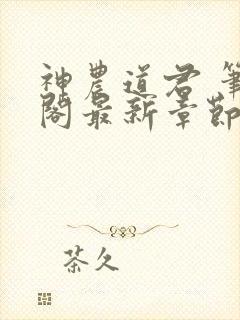 神農道君 筆
閣最新章節
茶久